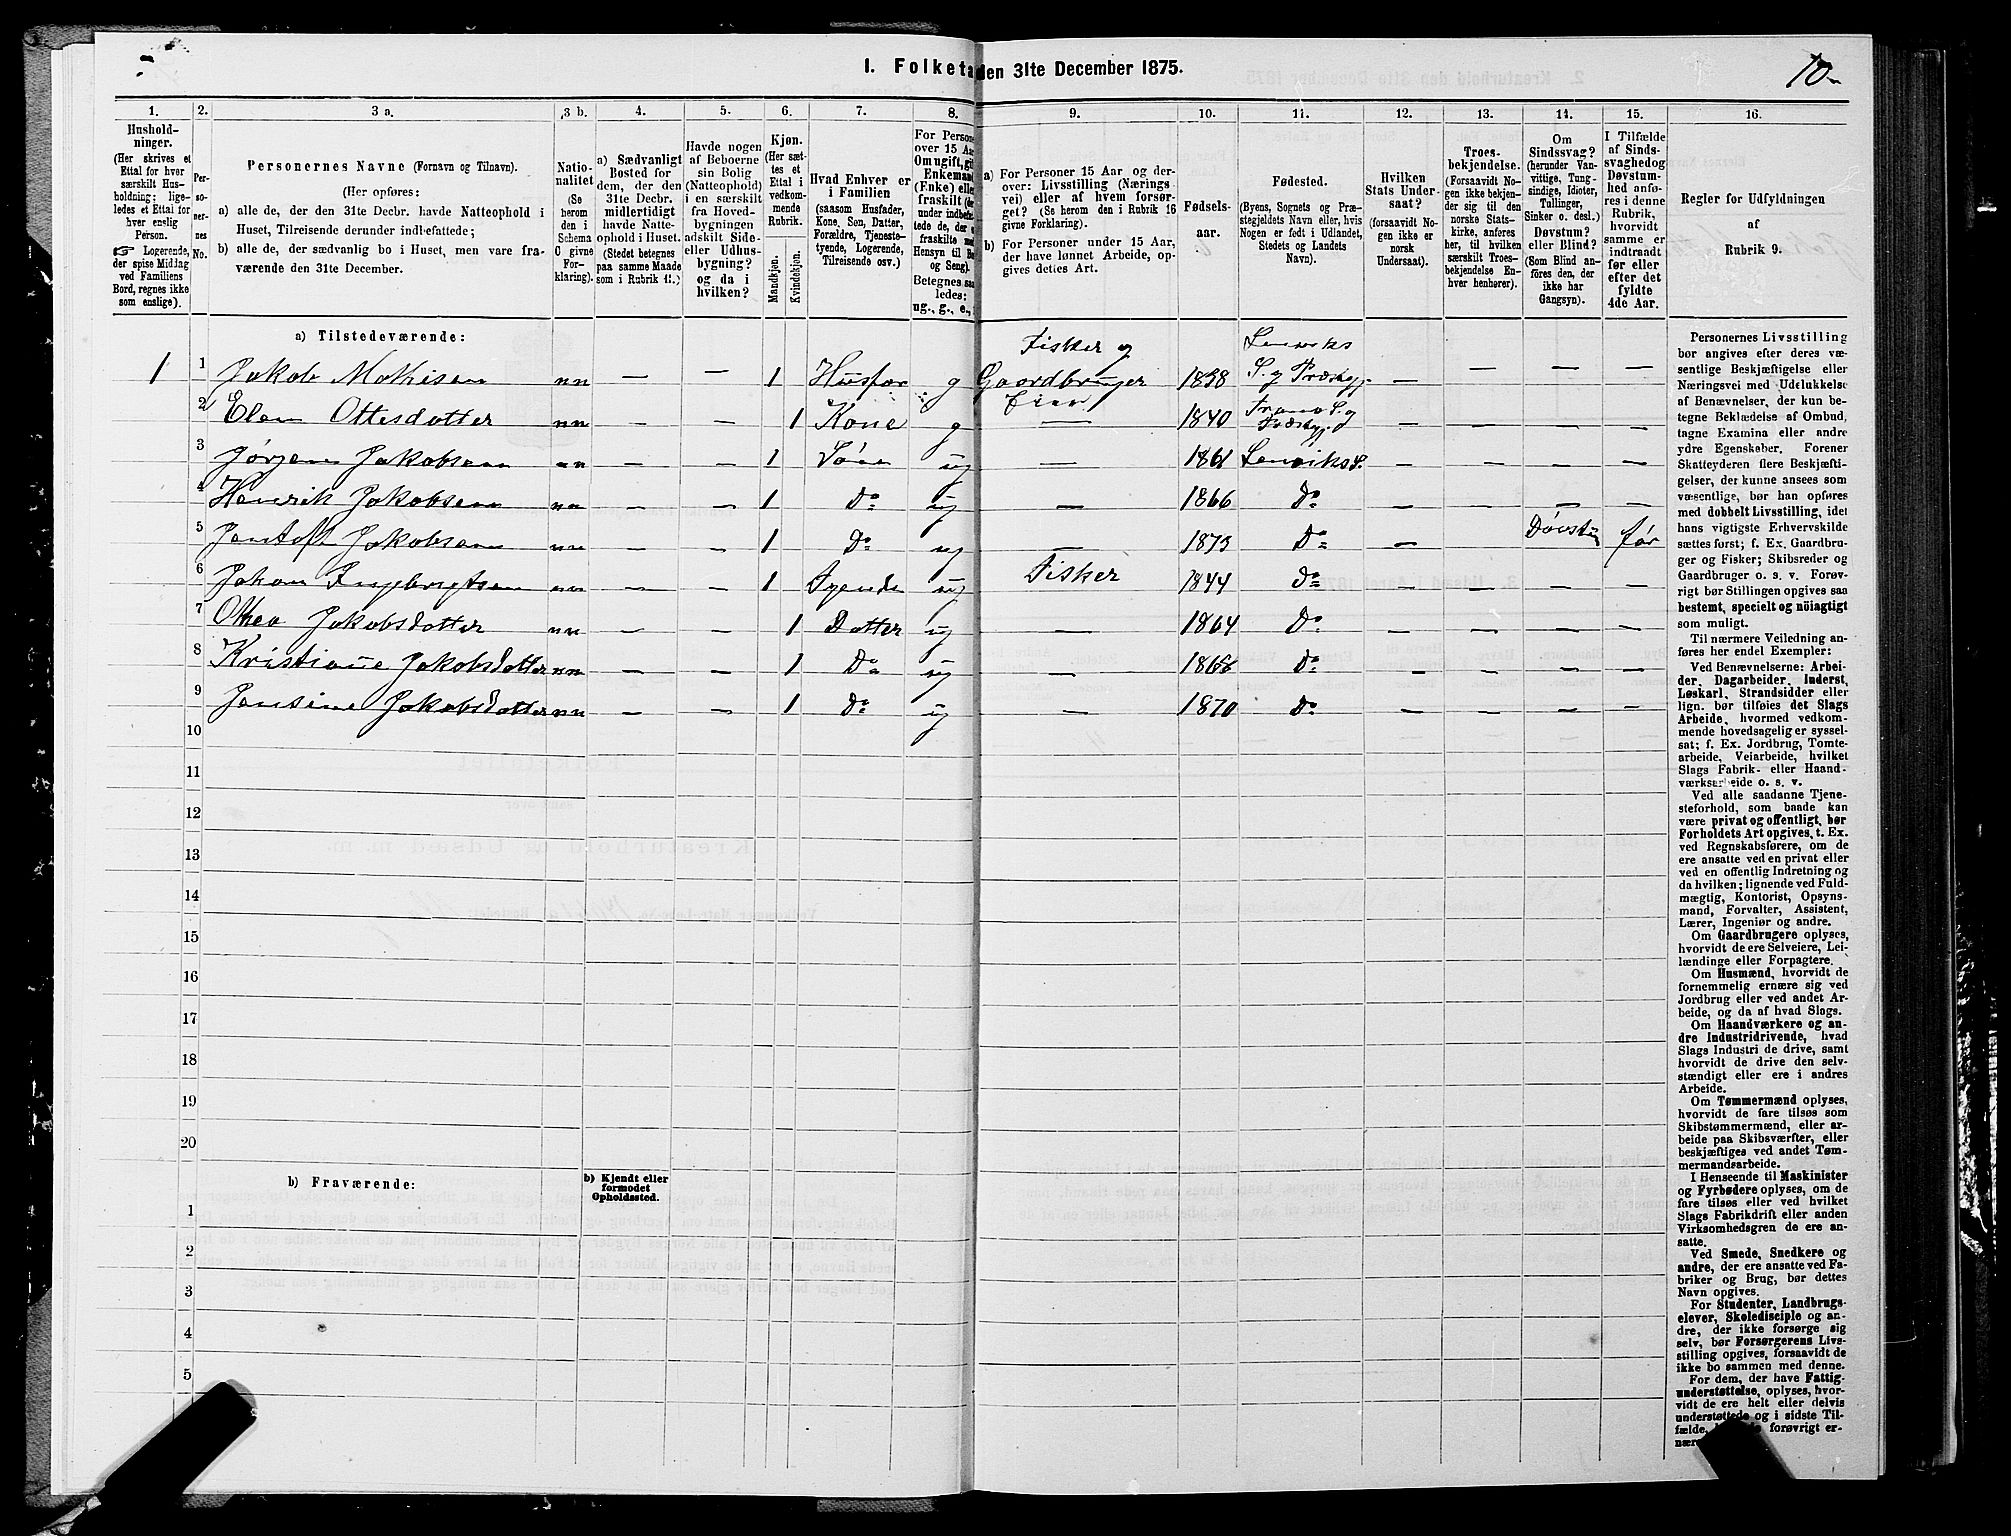 I. Folketa den 31te December 1875.
10.
1.
Hushold-
ninger.
(Her skrives et
Ettal for hver
særskilt Hus-
holdning; lige-
ledes et Ettal for
hver enslig
Person.
☞ Logerende,
der spise Middag
ved Familiens
Bord, regnes ikke
som enslige).
2.
Per-
so-
ner-
nes
No.
3 a.
Personernes Navne (Fornavn og Tilnavn).
(Her opføres:
a) alle de, der den 31te Decbr. havde Natteophold i
Huset, Tilreisende derunder indbefattede;
b) alle de, der sædvanlig bo i Huset, men vare fra-
værende den 31te December.
3 b.
Natio-
nalitet
(Se
herom
den i
Schema
6 givne
For-
klaring).
4.
a) Sædvanligt
Bosted for
dem, der den
31te Decbr.
midlertidigt
havde Natte-
ophold i Huset.
(Stedet betegnes
paa samme Maade
som i Rubrik 11.)
5.
Havde nogen
af Beboerne
sin Bolig
(Natteophold)
i en særskilt
fra Hoved-
bygningen
adskilt Side-
eller Udhus-
bygning?
og da i
hvilken?
6.
Kjøn.
(Her sæt-
tes et
Ettal i
vedkom-
mende
Rubrik.
Mandkjøn.
Kvindekjøn.
7.
Hvad Enhver er
i Familien
(saasom Husfader,
Kone, Søn, Datter,
Forældre, Tjeneste-
tyende, Logerende,
Tilreisende osv.)
8.
For Persone
over 15 Aa
Om ugift, gi
Enkemand
(Enke) elle
fraskilt
under indbe
tede de,
fraskilte
Hensyn til B
og Seng).
Betegnes saa
ledes:
ug., g., e.,
9.
a) For Personer 15 Aar og der-
over: Livsstilling (Nærings-
vei) eller af hvem forsør-
get? (Se herom den i Rubrik 16
givne Forklaring).
b) For Personer under 15 Aar,
der have lønnet Arbeide, op-
gives dettes Art.
10.
Fødsels-
aar.
11.
Fødested.
(Byens, Sognets og Præ-
stegjeldets Navn eller, hvis
Nogen er født i Udlandet,
Stedets og Landets
Navn).
12.
Hvilken
Stats Under-
saat?
(forsaavidt No-
gen ikke er
norsk
Undersaat).
13.
Troes-
bekjendelse.
(Forsaavidt No-
gen ikke bekjen-
der sig til den
norske Stats-
kirke, anføres
her, til hvilken
særskilt Troes-
bekjendelse En-
hver henhører).
14.
Om
Sindssvag?
(herunder Van-
vittige, Tung-
sindige, Idioter,
Tullinger,
Sinker o. desl.)
Døvstum?
eller Blind?
(Som Blind an-
føres den, der
ikke har
Gangsyn).
15.
I Tilfælde
af Sinds-
svaghedog
Døvstum-
hed anfø-
res i denne
Rubrik,
hvorvidt
samme er
indtraadt
før eller
efter det
fyldte
4de Aar.
16.
Regler for Udfyldningen
af
Rubrik 9.
a) Tilstedeværende:
1 1 Jakob Mathisen nn — — 1 Husfar g Fisker og Gaardbruger Eier 1838 Lenviks S. og Præstgj. — — — —
2 Elen Ottesdatter nn — — 1 Kone g — 1840 Tranø S. og Præstgj. — — — —
3 Jørgen Jakobsen nn — — 1 Søn ug — 1861 Lenviks S. — — — —
4 Henrik Jakobsen nn — — 1 Do ug — 1866 Do — — — —
5 Jentoft Jakobsen nn — — 1 Do ug — 1873 Do — Døvstum før
6 Johan Ingebrigtsen nn — — 1 Tyende ug Fisker 1844 Do — — — —
7 Othea Jakobsdatter nn — — 1 Datter ug — 1864 Do — — — —
8 Kristiane Jakobsdatter nn — — 1 Do ug — 1868 Do — — — —
9 Jensine Jakobsdatter nn — — 1 Do ug — 1870 Do — — — —
10
11
12
13
14
15
16
17
18
19
20
b) Fraværende:
b) Kjendt eller
formodet
Opholdssted.
1
2
3
4
5
Personernes Livsstilling
bør angives efter deres væ-
sentlige Beskjæftigelse eller
Næringsvei med Udelukkelse
af Benævnelser, der kun be-
tegne Beklædelse af Ombud,
tagne Examina eller andre
ydre Egenskaber. Forener
Skatteyderen flere Beskjæfti-
gelser, der kunne ansees som
væsentlige, bør han opføres
med dobbelt Livsstilling, idet
hans vigtigste Erhvervskilde
sættes først; f. Ex. Gaardbru-
ger og Fisker; Skibsreder og
Gaardbruger o. s. v. Forøv-
rigt bør Stillingen opgives saa
bestemt, specielt og nöiagtigt
som muligt.
Til nærmere Veiledning an-
føres her endel Exempler:
Ved Benævnelserne: Arbei-
der, Dagarbeider, Inderst,
Løskarl, Strandsidder eller
lign. bør tilføies det Slags
Arbeide, hvormed vedkom-
mende hovedsagelig er syssel-
sat; f. Ex. Jordbrug, Tomte-
arbeide, Veiarbeide, hvilket
Slags Fabrik- eller Haand-
værksarbeide o. s. v.
Ved alle saadanne Tjene-
steforhold, som baade kan
være privat og offentligt, bør
Forholdets Art opgives, t. Ex.
ved Regnskabsførere, om de
ere ansatte ved en privat eller
ved en offentlig Indretning og
da hvilken; lignende ved Fuld-
mægtig, Kontorist, Opsyns-
mand, Forvalter, Assistent,
Lærer, Ingeniør og andre.
Om Gaardbrugere oplyses,
hvorvidt de ere Selveiere, Lei-
lændinge eller Forpagtere.
Om Husmænd, hvorvidt de
fornemmelig ernære sig ved
Jordbrug eller ved andet Ar-
beide, og da af hvad Slags.
Om Haandværkere og an-
dre Industridrivende, hvad
Slags Industri de drive, samt
hvorvidt de drive den selv-
stændigt eller ere i andres
Arbeide.
Om Tømmermænd oplyses,
hvorvidt de fare tilsøs som
Skibstømmermænd, eller ar-
beide paa Skibsværfter, eller
beskjæftiges ved andet Tøm-
mermandsarbeide.
I Henseende til Maskinister
og Fyrbødere oplyses, om de
fare tilsøs eller ved hvilket
Slags Fabrikdrift eller anden
Virksomhedsgren de ere an-
satte.
Ved Smede, Snedkere og
andre, der ere ansatte ved Fa-
briker og Brug, bør dettes
Navn opgives.
For Studenter, Landbrugs-
elever, Skoledisciple og an-
dre, der ikke forsørge sig
selv, bør Forsørgerens Livs-
stilling opgives, forsaavidt de
ikke bo sammen med denne.
For dem, der have Fattig-
understøttelse, oplyses, hvor-
vidt de ere helt eller delvis
understøttede og i sidste Til-
fælde, forøvrigt er-
nære